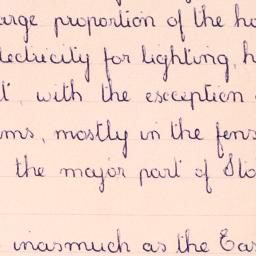 arge proportion of the ho
lectricity for lighting, h
t, with the esception
ms, mostly in the fens
the major part of Sto
inasmuch as the Eas